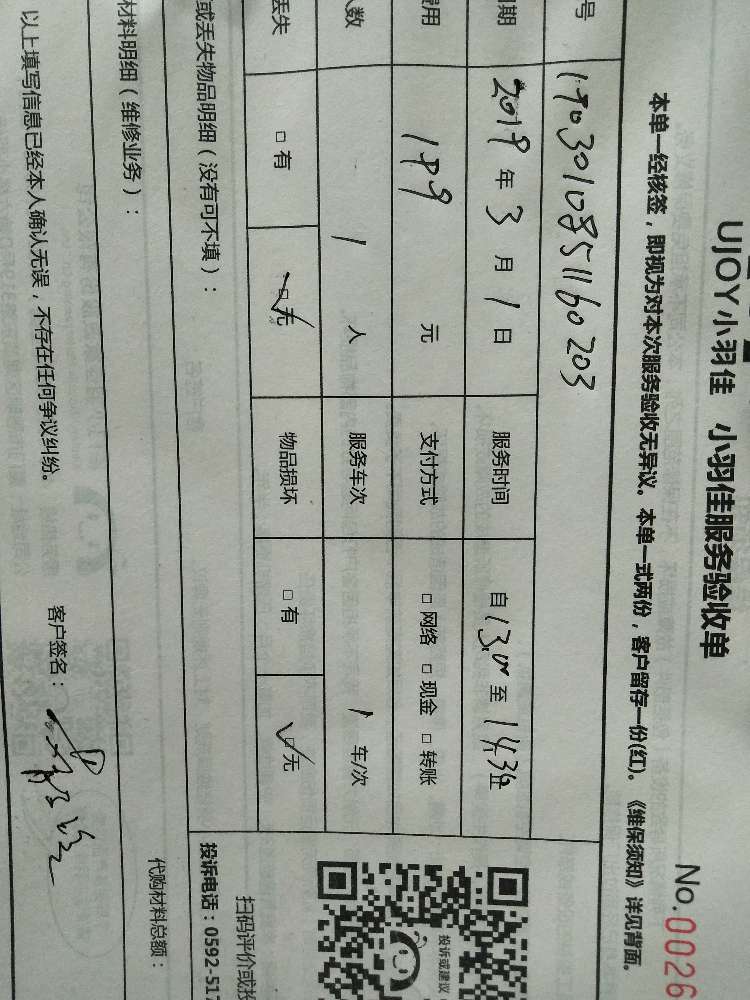 UJOY小羽佳 小羽佳服务验收单
No.0026
本单一经核签，即视为对本次服务验收无异议。本单一式两份，客户留存一份(红)。《维保须知》详见背面。
号 1903010851160203
期 2019年3月1日 服务时间 自13:00至14:30止
费用 189元 支付方式 □网络 □现金 □转账
人数 1人 服务车次 1车/次
丢失 □有 □无 物品损坏 □有 □无
或丢失物品明细（没有可不填）：
材料明细（维修业务）：
代购材料总额：
以上填写信息已经本人确认无误，不存在任何争议纠纷。 客户签名：
投诉或建议
扫码评价或投
投诉电话：0592-517